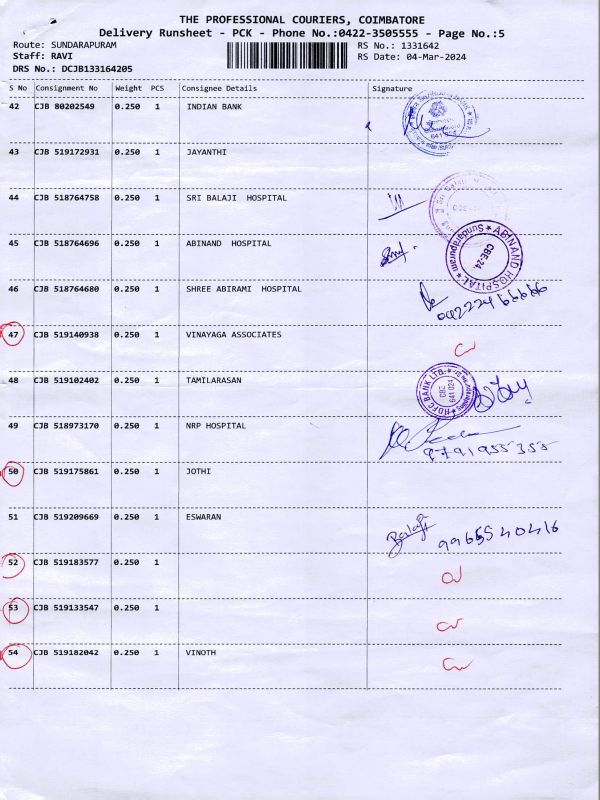 THE PROFESSIONAL COURIERS, COIMBATORE
Delivery Runsheet - PCK - Phone No.:0422-3505555 - Page No.:5
Route: SUNDARAPURAM RS No.: 1331642
Staff: RAVI RS Date: 04-Mar-2024
DRS No.: DCJB133164205
S No Consignment No Weight PCS Consignee Details Signature
42 CJB 80202549 0.250 1 INDIAN BANK
641 024
43 CJB 519172931 0.250 1 JAYANTHI
44 CJB 518764758 0.250 1 SRI BALAJI HOSPITAL
Sri Balaji
45 CJB 518764696 0.250 1 ABINAND HOSPITAL
ABINAND HOSPITAL
Sundarapuram
CBE-24.
46 CJB 518764680 0.250 1 SHREE ABIRAMI HOSPITAL
04222466666
47 CJB 519140938 0.250 1 VINAYAGA ASSOCIATES
48 CJB 519102402 0.250 1 TAMILARASAN
HDFC BANK LTD.
CBE
641 024
49 CJB 518973170 0.250 1 NRP HOSPITAL
9791955355
50 CJB 519175861 0.250 1 JOTHI
51 CJB 519209669 0.250 1 ESWARAN
Balaji 9965540416
52 CJB 519183577 0.250 1
53 CJB 519133547 0.250 1
54 CJB 519182042 0.250 1 VINOTH